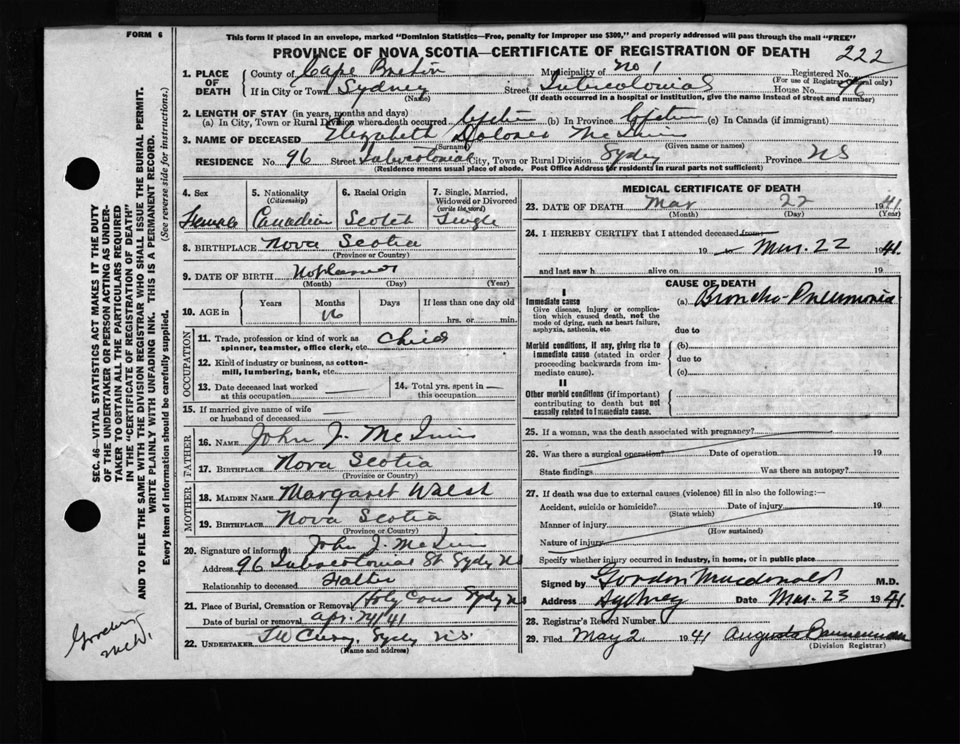 FORM 6
This form if placed in an envelope, marked "Dominion Statistics—Free, penalty for improper use $300," and properly addressed will pass through the mail "FREE"
PROVINCE OF NOVA SCOTIA—CERTIFICATE OF REGISTRATION OF DEATH
222
1. PLACE OF DEATH
County of Cape Breton Municipality of No 1 Registered No.
(For use of Registrar General only)
If in City or Town Sydney Street House No. 96
(Name) (If death occurred in a hospital or institution, give the name instead of street and number)
2. LENGTH OF STAY (in years, months and days)
(a) In City, Town or Rural Division where death occurred Lifetime (b) In Province Lifetime (c) In Canada (if immigrant)
3. NAME OF DECEASED Elizabeth Dolores McInnis
(Surname) (Given name or names)
RESIDENCE No. 96 Street City, Town or Rural Division Sydney Province NS
(Residence means usual place of abode. Post Office Address for residents in rural parts not sufficient)
4. Sex Female
5. Nationality (Citizenship) Canadian
6. Racial Origin Scotch
7. Single, Married, Widowed or Divorced (write the word) Single
8. BIRTHPLACE Nova Scotia
(Province or Country)
9. DATE OF BIRTH
(Month) (Day) (Year)
10. AGE in Years Months Days If less than one day old
hrs. or min.
OCCUPATION
11. Trade, profession or kind of work as spinner, teamster, office clerk, etc. Child
12. Kind of industry or business, as cotton-mill, lumbering, bank, etc.
13. Date deceased last worked at this occupation
14. Total yrs. spent in this occupation
15. If married give name of wife or husband of deceased
FATHER
16. NAME John J. McInnis
17. BIRTHPLACE Nova Scotia
(Province or Country)
MOTHER
18. MAIDEN NAME Margaret Walsh
19. BIRTHPLACE Nova Scotia
(Province or Country)
20. Signature of informant John J. McInnis
Address 96 St Sydney NS
Relationship to deceased Father
21. Place of Burial, Cremation or Removal Holy Cross Sydney NS
Date of burial or removal
22. UNDERTAKER Sydney NS.
(Name and address)
MEDICAL CERTIFICATE OF DEATH
23. DATE OF DEATH Mar 22 1941
(Month) (Day) (Year)
24. I HEREBY CERTIFY that I attended deceased from
19 to Mar. 22 1941.
and last saw h alive on 19
CAUSE OF DEATH
I
Immediate cause (a) Broncho-Pneumonia
Give disease, injury or complication which caused death, not the mode of dying, such as heart failure, asphyxia, asthenia, etc
due to
Morbid conditions, if any, giving rise to immediate cause (stated in order proceeding backwards from immediate cause).
(b)
due to
(c)
II
Other morbid conditions (if important) contributing to death but not causally related to immediate cause.
25. If a woman, was the death associated with pregnancy?
26. Was there a surgical operation? Date of operation 19
State findings Was there an autopsy?
27. If death was due to external causes (violence) fill in also the following:—
Accident, suicide or homicide? Date of injury 19
(State which)
Manner of injury
(How sustained)
Nature of injury
Specify whether injury occurred in industry, in home, or in public place
Signed by Gordon Macdonald M.D.
Address Sydney Date Mar. 23 1941
28. Registrar's Record Number
29. Filed May 2 1941 Augusta Bannerman
(Division Registrar)
SEC. 46—VITAL STATISTICS ACT MAKES IT THE DUTY
OF THE UNDERTAKER OR PERSON ACTING AS UNDER-
TAKER TO OBTAIN ALL THE PARTICULARS REQUIRED
IN THE "CERTIFICATE OF REGISTRATION OF DEATH"
AND TO FILE THE SAME WITH THE DIVISION REGISTRAR WHO SHALL ISSUE THE BURIAL PERMIT.
WRITE PLAINLY WITH UNFADING INK. THIS IS A PERMANENT RECORD.
Every item of information should be carefully supplied. (See reverse side for instructions.)